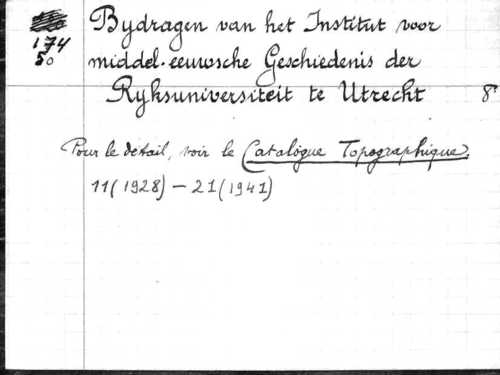 174
50
Bydragen van het Institut voor
middel-eeuwsche Geschiedenis der
Ryksuniversiteit te Utrecht 8°
Pour le détail, voir le Catalogue Topographique.
11 (1928) — 21 (1941)